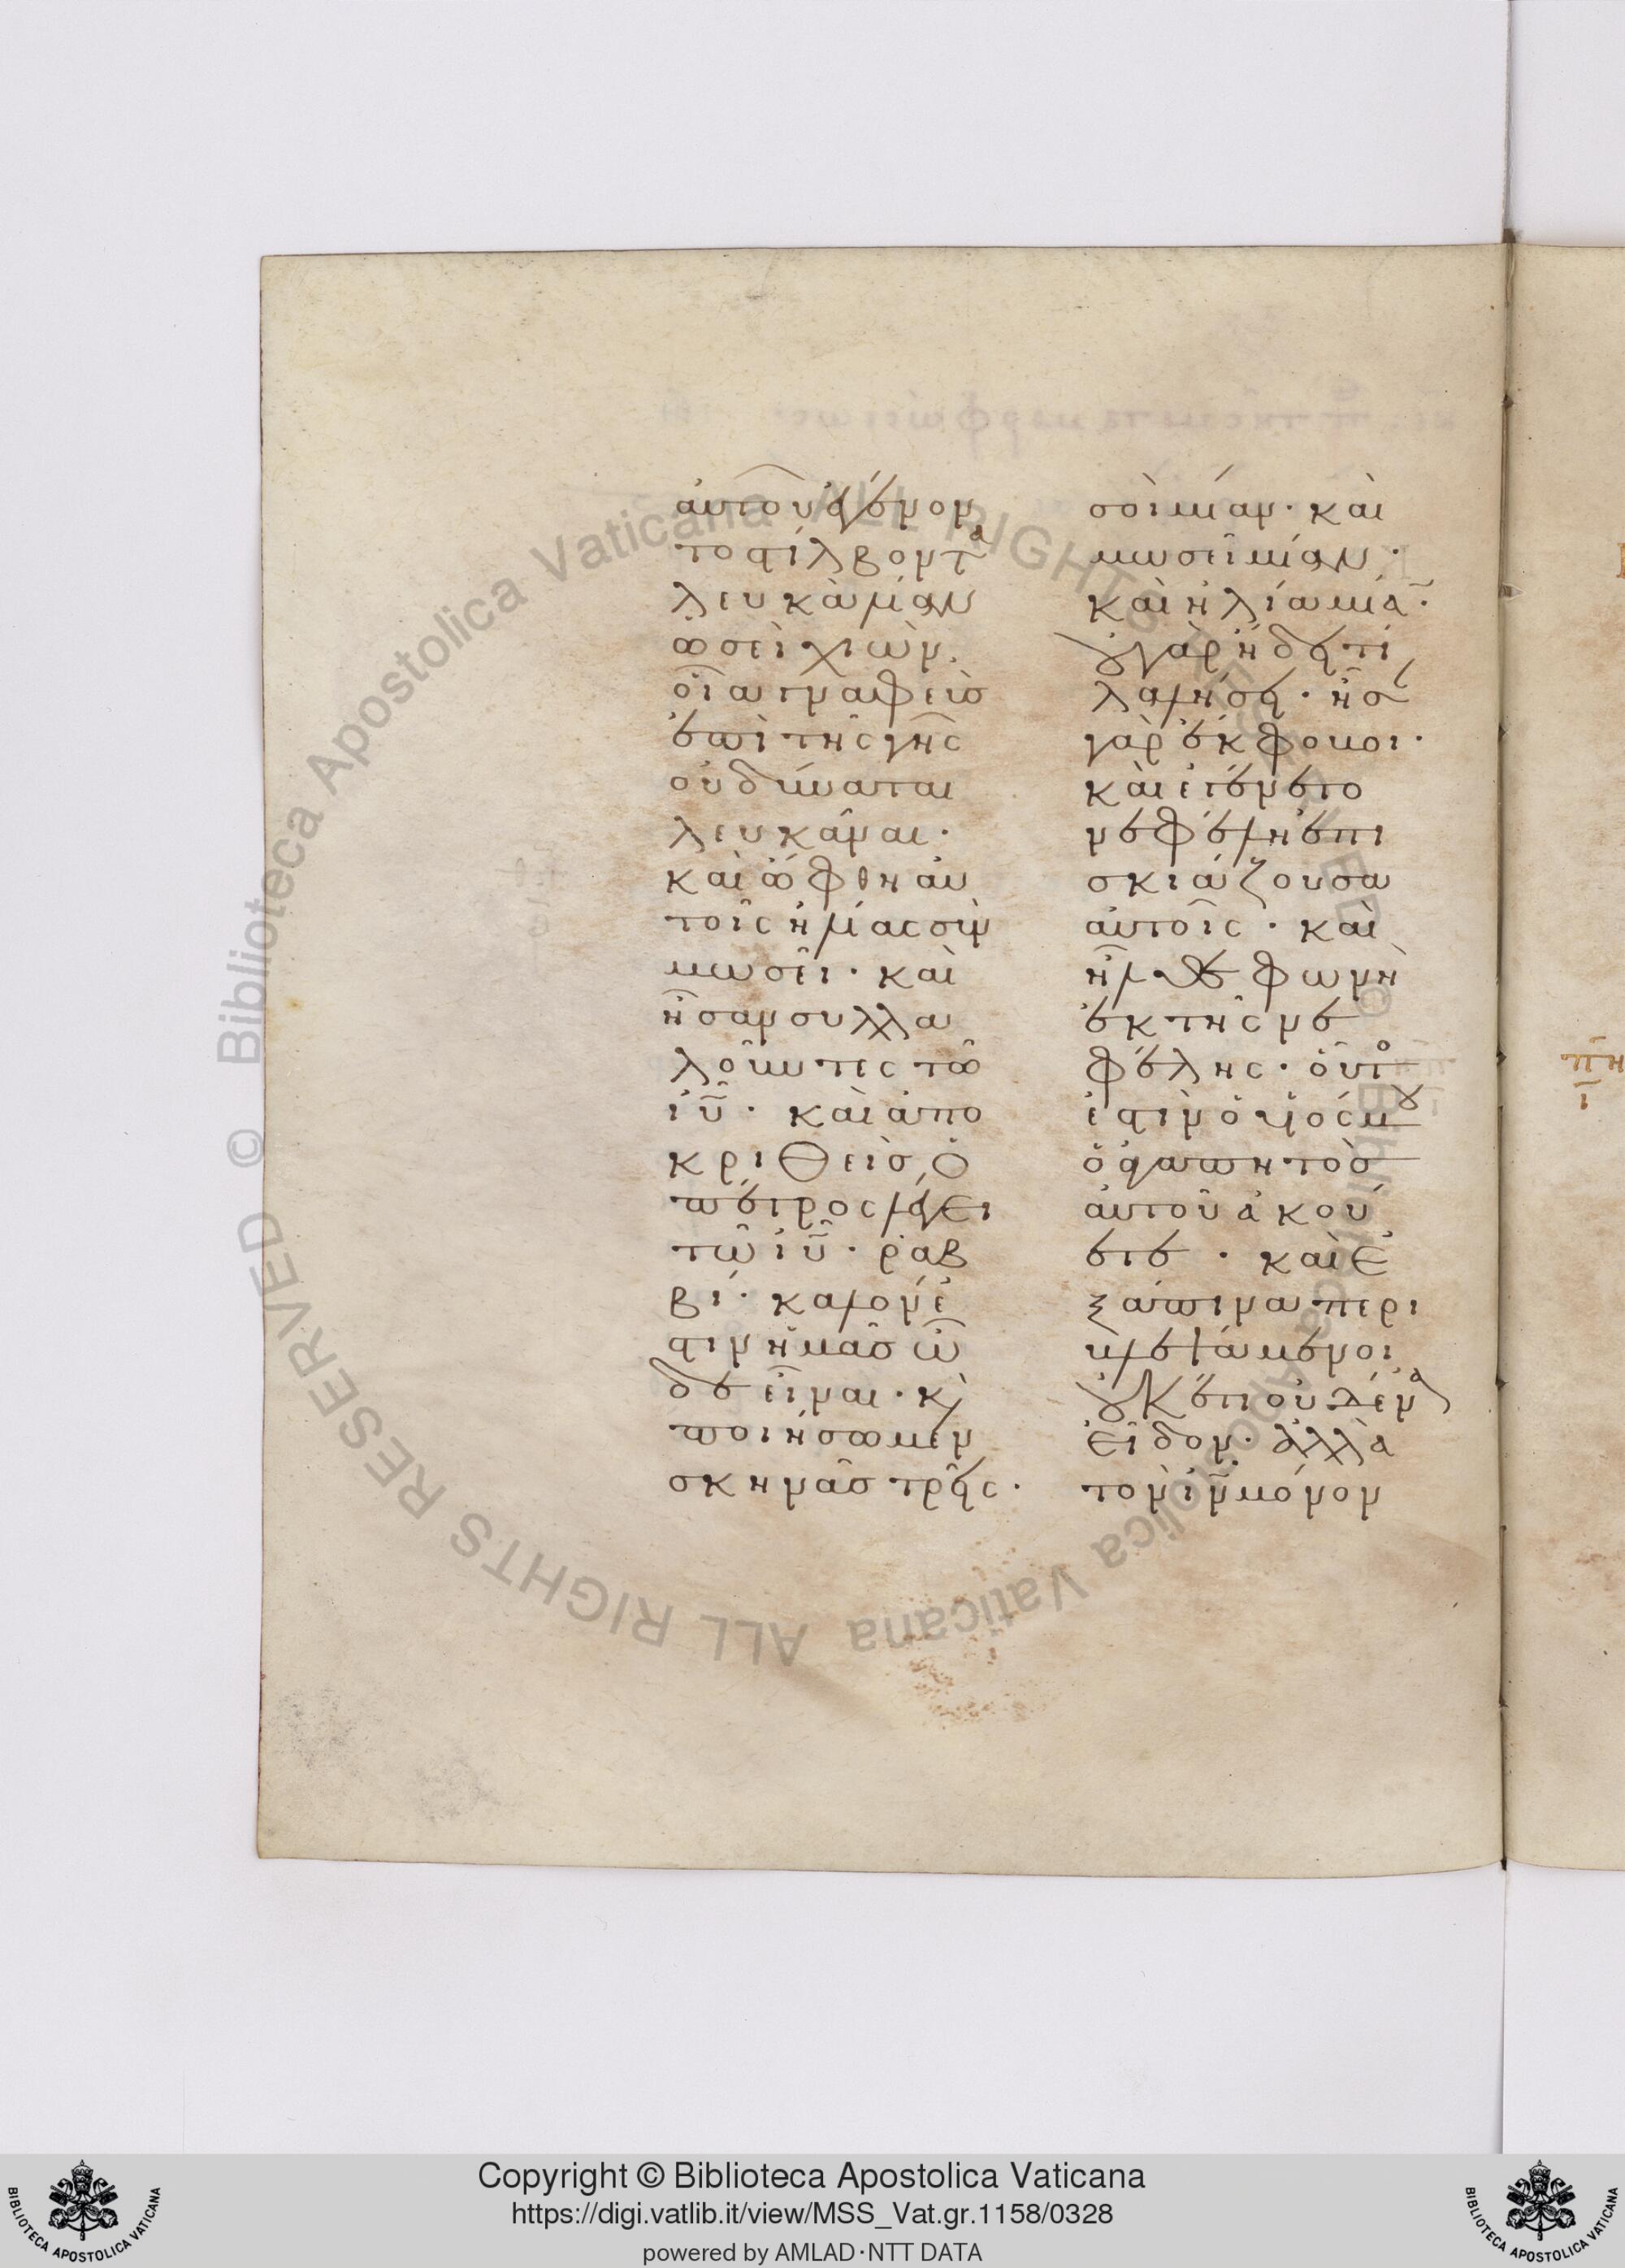 αὐτοῦ ἐγένον
το στίλβοντα
λευκὰ λίαν
ὡσεὶ χιών.
οἷα γναφεὺσ
ἐπὶ τῆς γῆς
οὐ δύναται
λευκᾶναι·
καὶ ὤφθη αὐ
τοῖς ἠλίας σὺν
μωσεῖ· καὶ
ἦσαν συλλα
λοῦντες τῶ
ἰῦ· καὶ ἀπο
κριθεὶσ ὁ
πέτρος λέγει
τῶ ἰῦ· ῥαβ
βί· καλόν ἐ
στιν ἡμᾶσ ὧ
δε εἶναι· κὶ
ποιήσωμεν
σκηνᾶσ τρεῖς·
σοὶ μίαν· καὶ
μωσεῖ μίαν·
καὶ ἠλία μίαν·
οὐ γὰρ ἤδει τί
λαλήσει· ἦσαν
γὰρ ἔκφοβοι·
καὶ ἐγένετο
νεφέλη ἐπι
σκιάζουσα
αὐτοῖς· καὶ
ἦλθε φωνὴ
ἐκ τῆς νε
φέλης· οὗτό
ἐστιν ὁ υἱός μου
ὁ ἀγαπητὸσ
αὐτοῦ ἀκού
ετε· καὶ ἐ
ξάπινα περι
βλεψάμενοι
οὐκέτι οὐδένα
εἶδον· ἀλλὰ
τὸν ἰν μόνον
Copyright © Biblioteca Apostolica Vaticana
https://digi.vatlib.it/view/MSS_Vat.gr.1158/0328
powered by AMLAD·NTT DATA
BIBLIOTECA APOSTOLICA VATICANA
BIBLIOTECA APOSTOLICA VATICANA
© Biblioteca Apostolica Vaticana ALL RIGHTS RESERVED © Biblioteca Apostolica Vaticana ALL RIGHTS RESERVED